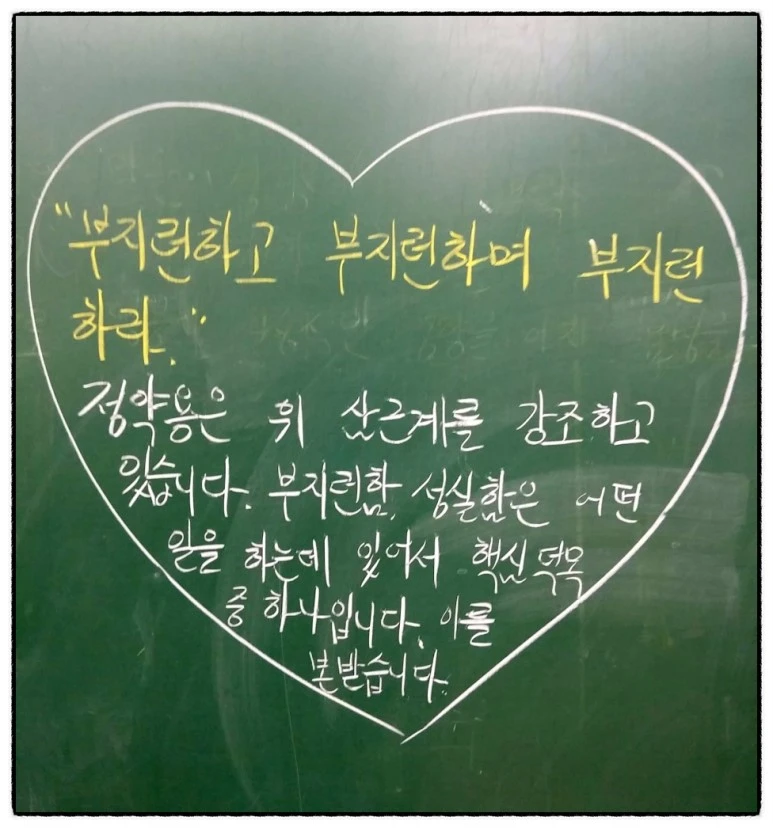 "부지런하고 부지런하며 부지런
하라."
정약용은 위 삼근계를 강조하고
있습니다. 부지런함, 성실함은 어떤
일을 하는데 있어서 핵심 덕목
중 하나입니다. 이를
본받습니다.